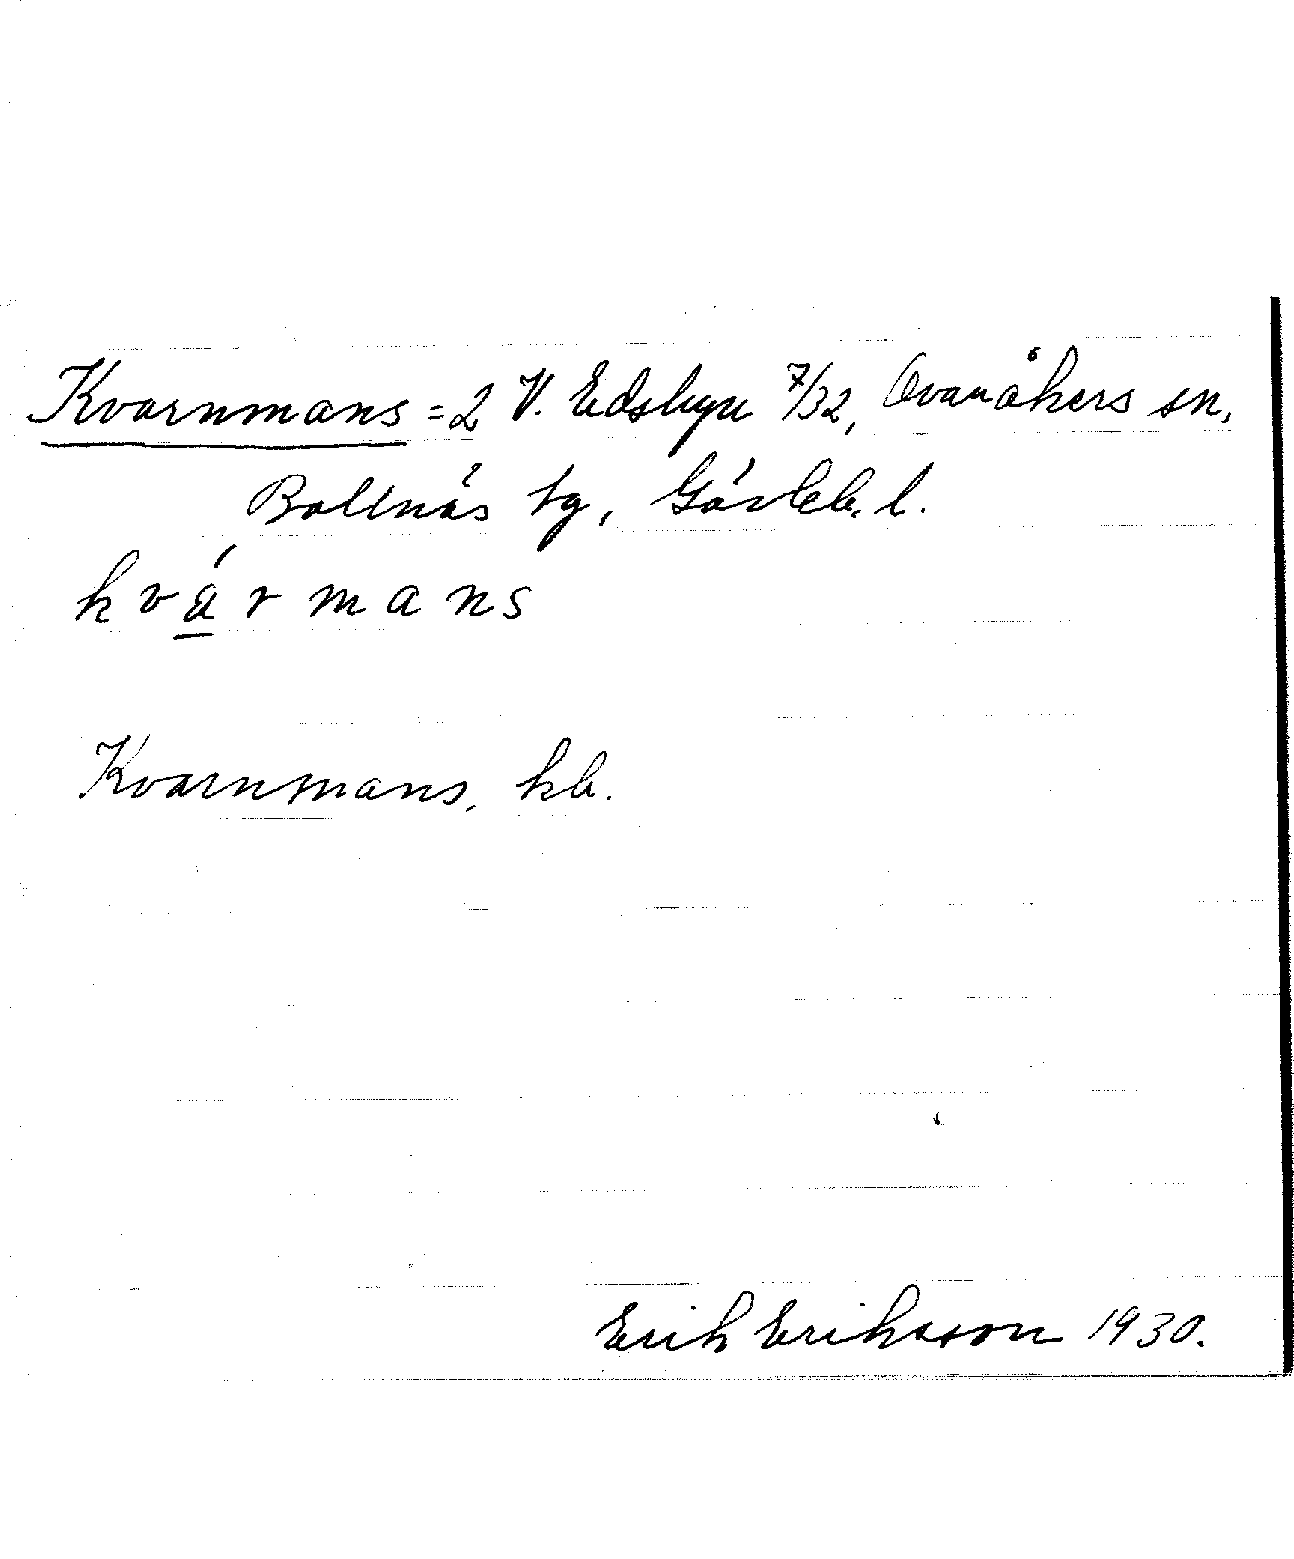 Kvarnmans = 2 V. Edsbyn 7/32, Ovanåkers sn,
Bollnäs tg, Gävleb. l.
kvá̱rmans
Kvarnmans, kb.
Erik Eriksson 1930.